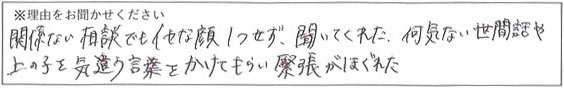 ※理由をお聞かせください
関係ない相談でもイヤな顔1つせず、聞いてくれた、何気ない世間話や
上の子を気遣う言葉をかけてもらい緊張がほぐれた